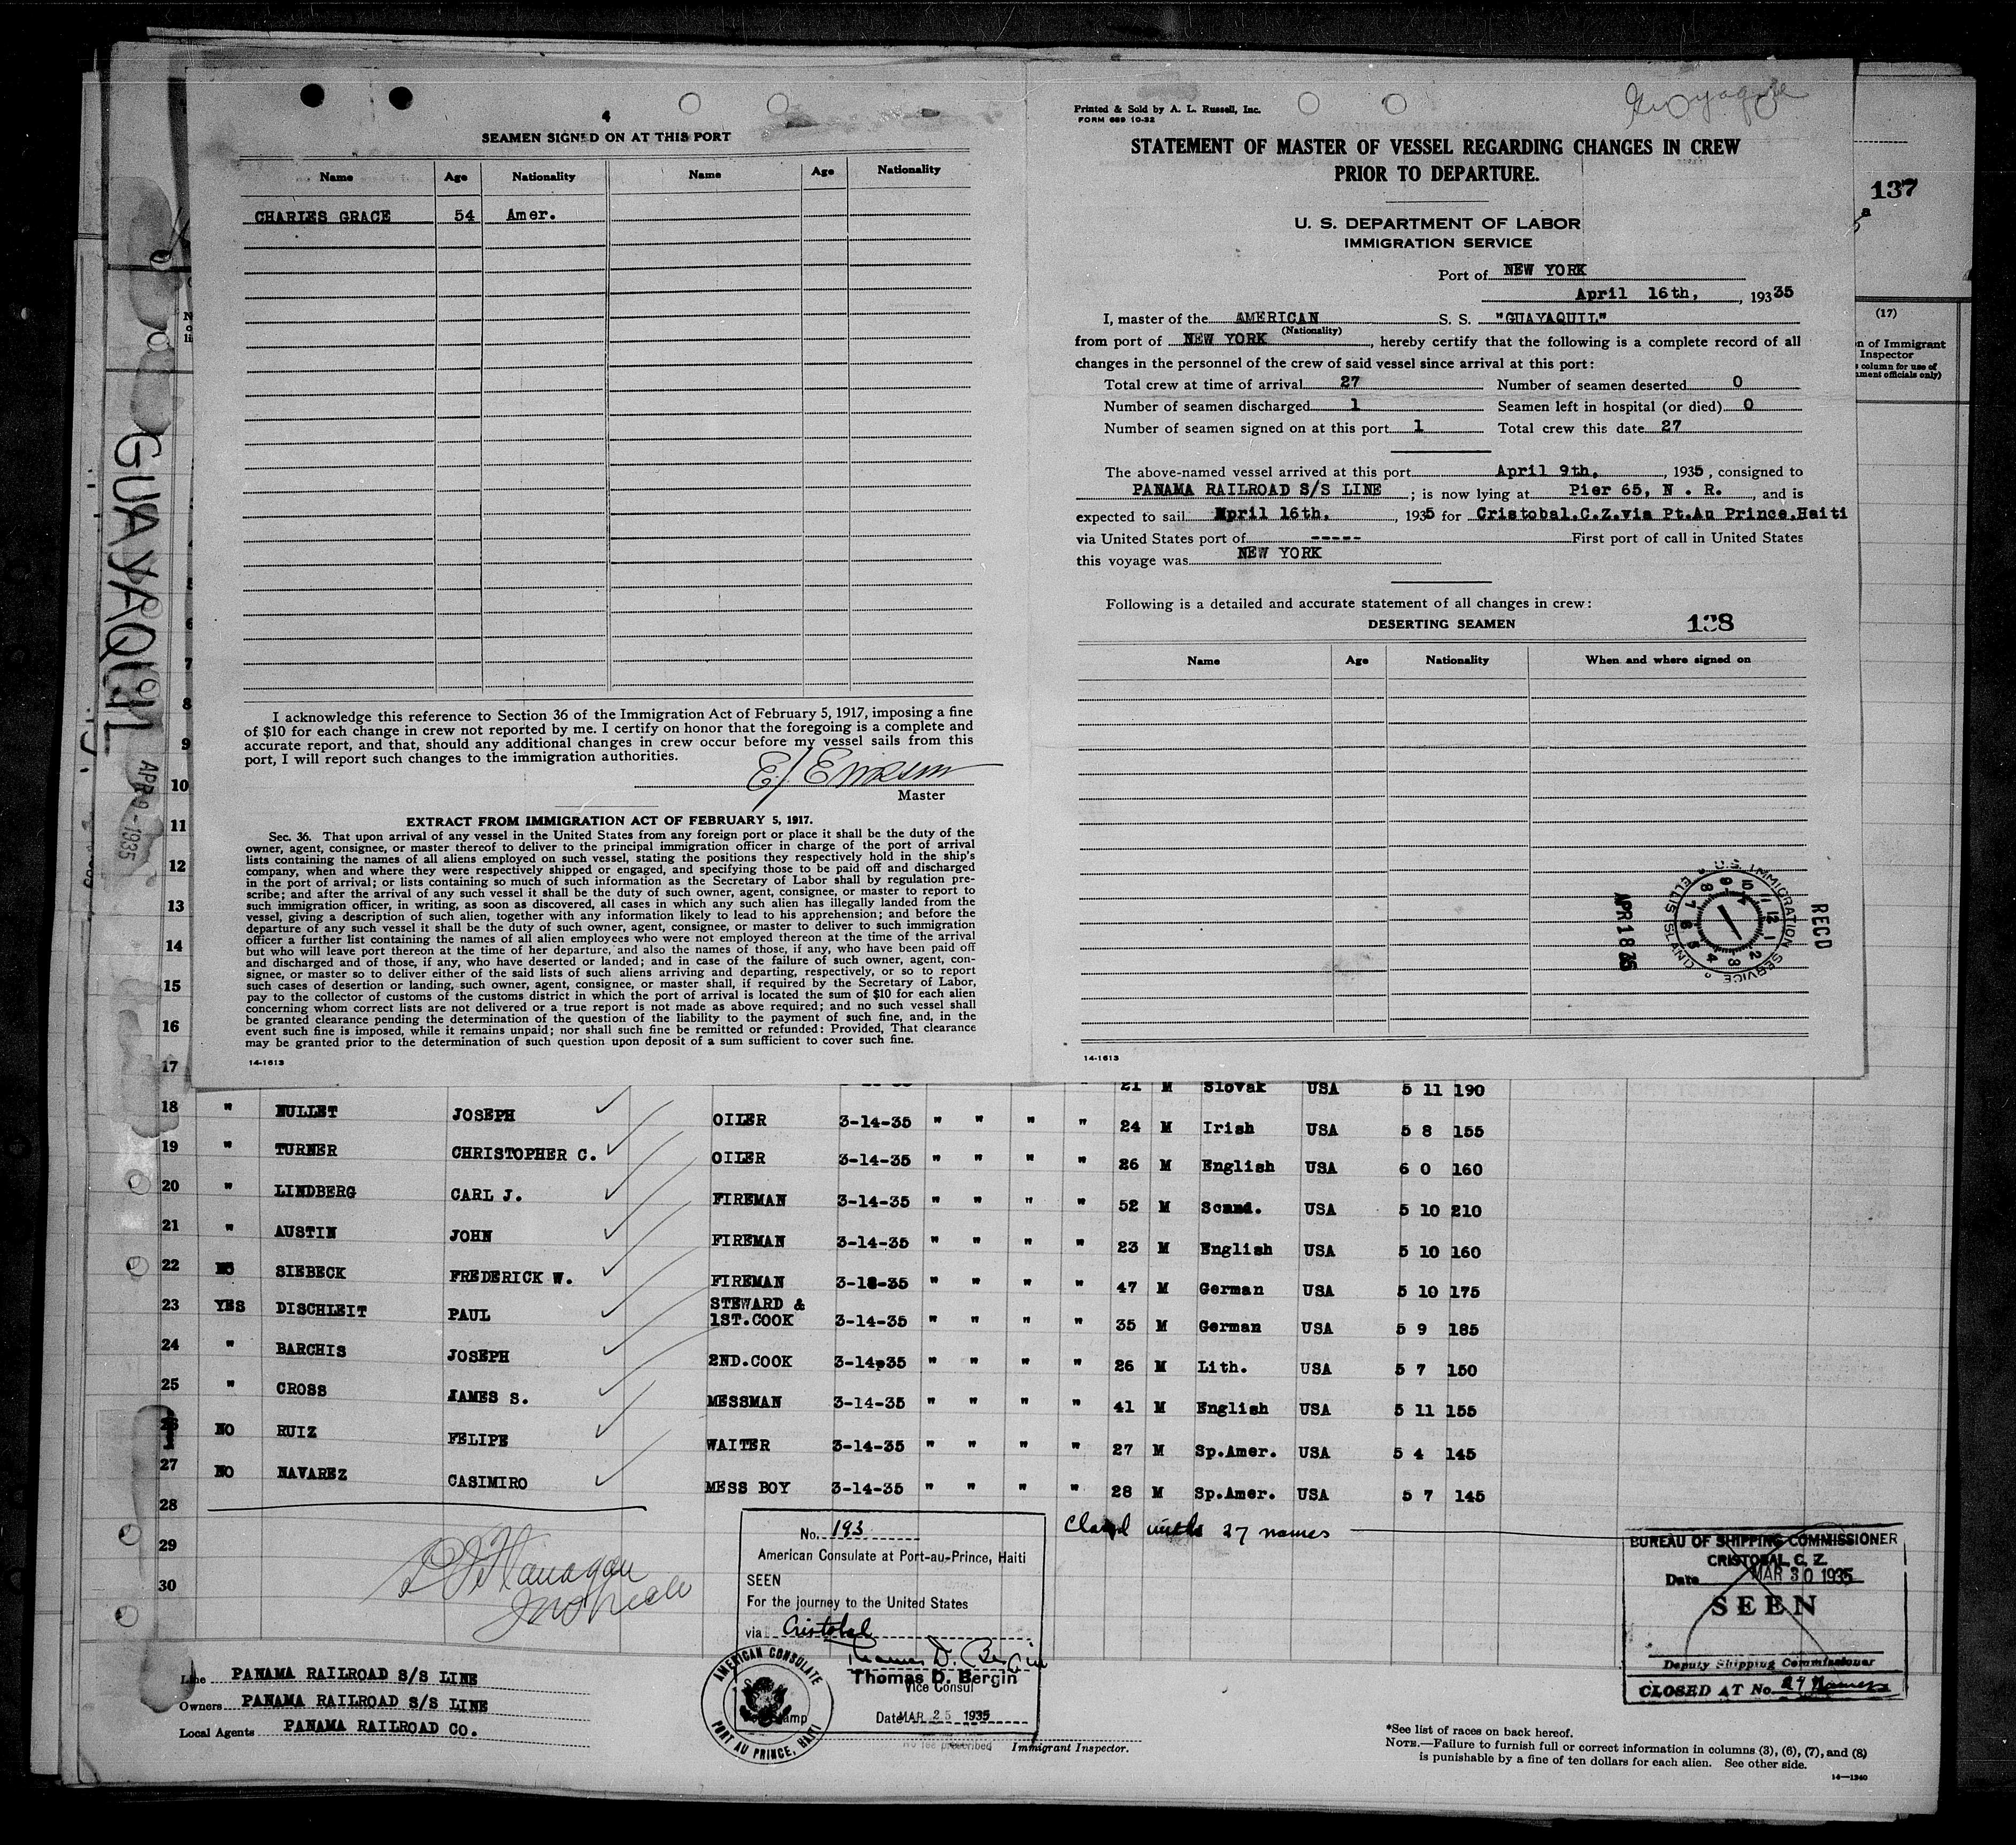 4
SEAMEN SIGNED ON AT THIS PORT
Name Age Nationality Name Age Nationality
CHARLES GRACE 54 Amer.
I acknowledge this reference to Section 36 of the Immigration Act of February 5, 1917, imposing a fine
of $10 for each change in crew not reported by me. I certify on honor that the foregoing is a complete and
accurate report, and that, should any additional changes in crew occur before my vessel sails from this
port, I will report such changes to the immigration authorities.
Master
EXTRACT FROM IMMIGRATION ACT OF FEBRUARY 5, 1917.
Sec. 36. That upon arrival of any vessel in the United States from any foreign port or place it shall be the duty of the
owner, agent, consignee, or master thereof to deliver to the principal immigration officer in charge of the port of arrival
lists containing the names of all aliens employed on such vessel, stating the positions they respectively hold in the ship's
company, when and where they were respectively shipped or engaged, and specifying those to be paid off and discharged
in the port of arrival; or lists containing so much of such information as the Secretary of Labor shall by regulation pre-
scribe; and after the arrival of any such vessel it shall be the duty of such owner, agent, consignee, or master to report to
such immigration officer, in writing, as soon as discovered, all cases in which any such alien has illegally landed from the
vessel, giving a description of such alien, together with any information likely to lead to his apprehension; and before the
departure of any such vessel it shall be the duty of such owner, agent, consignee, or master to deliver to such immigration
officer a further list containing the names of all alien employees who were not employed thereon at the time of the arrival
but who will leave port thereon at the time of her departure, and also the names of those, if any, who have been paid off
and discharged and of those, if any, who have deserted or landed; and in case of the failure of such owner, agent, con-
signee, or master so to deliver either of the said lists of such aliens arriving and departing, respectively, or so to report
such cases of desertion or landing, such owner, agent, consignee, or master shall, if required by the Secretary of Labor,
pay to the collector of customs of the customs district in which the port of arrival is located the sum of $10 for each alien
concerning whom correct lists are not delivered or a true report is not made as above required; and no such vessel shall
be granted clearance pending the determination of the question of the liability to the payment of such fine, and, in the
event such fine is imposed, while it remains unpaid; nor shall such fine be remitted or refunded: Provided, That clearance
may be granted prior to the determination of such question upon deposit of a sum sufficient to cover such fine.
14-1613
Printed & Sold by A. L. Russell, Inc.
FORM 689 10-32
Guayaquil
STATEMENT OF MASTER OF VESSEL REGARDING CHANGES IN CREW
PRIOR TO DEPARTURE.
U. S. DEPARTMENT OF LABOR
IMMIGRATION SERVICE
Port of NEW YORK
April 16th, , 1935
I, master of the AMERICAN S. S. "GUAYAQUIL"
(Nationality)
from port of NEW YORK , hereby certify that the following is a complete record of all
changes in the personnel of the crew of said vessel since arrival at this port:
Total crew at time of arrival 27 Number of seamen deserted 0
Number of seamen discharged 1 Seamen left in hospital (or died) 0
Number of seamen signed on at this port 1 Total crew this date 27
The above-named vessel arrived at this port April 9th, , 1935, consigned to
PANAMA RAILROAD S/S LINE ; is now lying at Pier 65, N . R. , and is
expected to sail April 16th, , 1935 for Cristobal.C.Z.via Pt.Au Prince,Haiti
via United States port of ----- First port of call in United States
this voyage was NEW YORK
Following is a detailed and accurate statement of all changes in crew:
DESERTING SEAMEN 138
Name Age Nationality When and where signed on
RECD
APR 18 35
U. S. IMMIGRATION SERVICE
ELLIS ISLAND
14-1613
137
(17)
n of Immigrant
Inspector
column for use of
ment officials only)
GUAYAQUIL
APR 9 - 1935
8
9
10
11
12
13
14
15
16
17 21 M Slovak USA 5 11 190
18 " NULLET JOSEPH OILER 3-14-35 " " " " 24 M Irish USA 5 8 155
19 " TURNER CHRISTOPHER C. OILER 3-14-35 " " " " 26 M English USA 6 0 160
20 " LINDBERG CARL J. FIREMAN 3-14-35 " " " " 52 M Scand. USA 5 10 210
21 " AUSTIN JOHN FIREMAN 3-14-35 " " " " 23 M English USA 5 10 160
22 NO SIEBECK FREDERICK W. FIREMAN 3-18-35 " " " " 47 M German USA 5 10 175
23 YES DISCHLEIT PAUL STEWARD & 1ST.COOK 3-14-35 " " " " 35 M German USA 5 9 185
24 " BARCHIS JOSEPH 2ND.COOK 3-14-35 " " " " 26 M Lith. USA 5 7 150
25 " CROSS JAMES S. MESSMAN 3-14-35 " " " " 41 M English USA 5 11 155
26 NO RUIZ FELIPE WAITER 3-14-35 " " " " 27 M Sp.Amer. USA 5 4 145
27 NO NAVAREZ CASIMIRO MESS BOY 3-14-35 " " " " 28 M Sp.Amer. USA 5 7 145
28
29
30
Closed with 27 names
No. 193
American Consulate at Port-au-Prince, Haiti
SEEN
For the journey to the United States
via Cristobal
Thomas D. Bergin
Thomas D. Bergin
Vice Consul
Date MAR 25 1935
No fee prescribed
AMERICAN CONSULATE
PORT AU PRINCE, HAITI
BUREAU OF SHIPPING COMMISSIONER
CRISTOBAL, C. Z.
Date MAR 30 1935
SEEN
Deputy Shipping Commissioner
CLOSED AT No. 27 Names
Line PANAMA RAILROAD S/S LINE
Owners PANAMA RAILROAD S/S LINE
Local Agents PANAMA RAILROAD CO.
Immigrant Inspector.
*See list of races on back hereof.
NOTE.—Failure to furnish full or correct information in columns (3), (6), (7), and (8)
is punishable by a fine of ten dollars for each alien. See other side.
14—1240